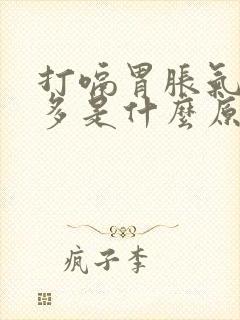 打嗝胃脹氣
多是什麼原
疯子李